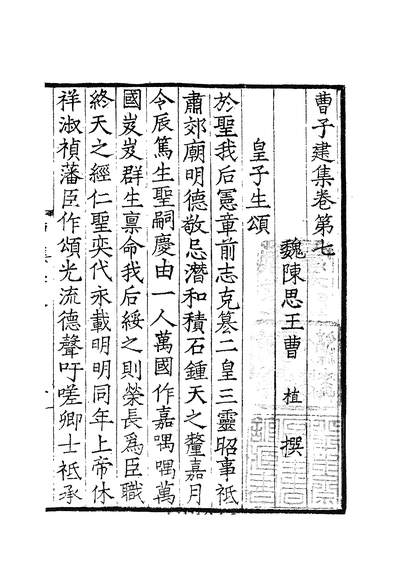 曹子建集卷第七
魏陳思王曹植撰
皇子生頌
於聖我后憲章前志克纂二皇三靈昭事祗
肅郊廟明德敬忌潛和積石鍾天之釐嘉月
令辰篤生聖嗣慶由一人萬國作嘉喁喁萬
國岌岌群生禀命我后綏之則榮長爲臣職
終天之經仁聖奕代永載明明同年上帝休
祥淑禎藩臣作頌光流德聲吁嗟卿士祗承